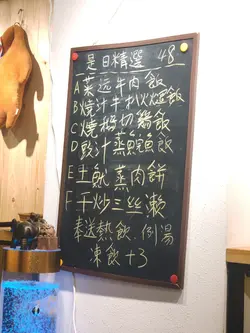 是日精選 48
A菜远牛肉飯
B燒汁牛扒火焰飯
C燒椒切雞飯
D豉汁蒸鯇魚飯
E土魷蒸肉餅
F干炒三丝瀨
奉送熱飲.例湯
凍飲+3